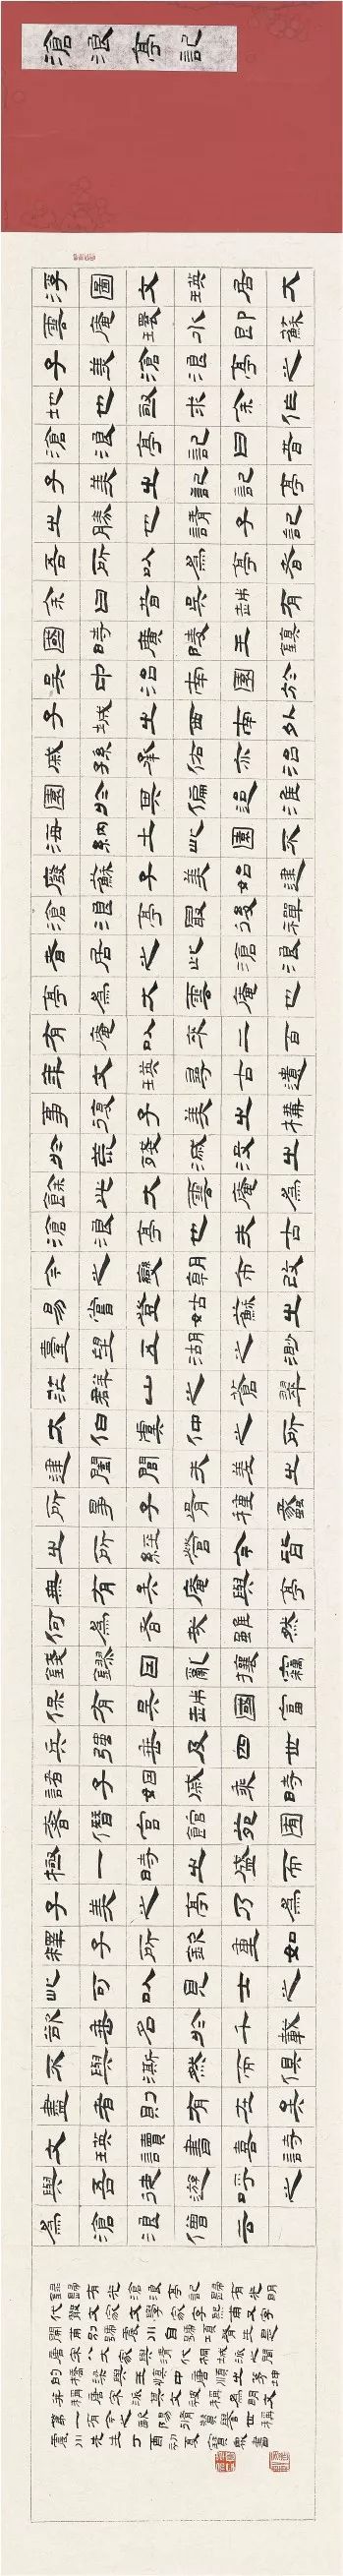 滄浪亭記
浮圖文瑛居大
雲庵環水即蘇
子美滄浪亭之
地也亟求余作
滄浪亭記曰昔
子美之記記亭
之勝也請子記
吾所以為亭者
余曰昔吳越有
國時廣陵王鎮
吳中治南園於
子城之西南外
戚孫承佑亦治
園於其偏迨淮
海納土此園不
廢蘇子美始建
滄浪亭最後禪
者居之此滄浪
亭為大雲庵也
有庵以來二百
年文瑛尋古遺
事復子美之構
於荒殘滅沒之
餘此大雲庵為
滄浪亭也夫古
今之變朝市改
易嘗登姑蘇之
臺望五湖之渺
茫群山之蒼翠
大伯虞仲之所
建闔閭夫差之
所爭子胥種蠡
之所經營今皆
無有矣庵與亭
何為者哉雖然
錢鏐因亂攘竊
保有吳越國富
兵強垂及四世
諸子姻戚乘時
奢僭宮館苑囿
極一時之盛而
子美之亭乃為
釋子所欽重如
此可以見士之
欲垂名於千載
不與澌然而俱
盡者則有在矣
文瑛讀書喜詩
與吾徒遊呼之
為滄浪僧云